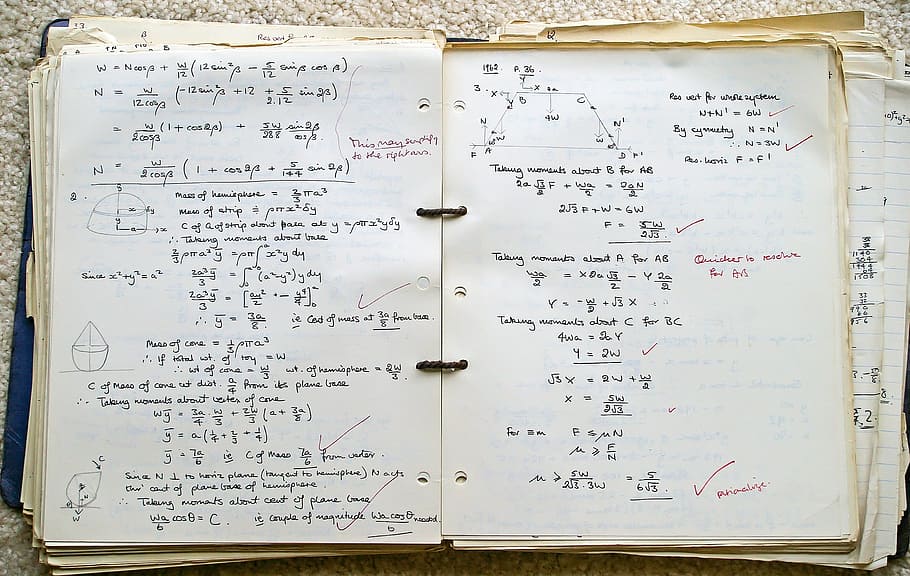 13
W = N cosβ + W/12 (12 sin²β − 5/12 sinβ cosβ)
N = W/12cosβ (−12 sin²β + 12 + 5/2.12 sin 2β)
= W/2cosβ (1 + cos2β) + 5W/288 sin2β/cosβ.
This may simplify
to the right ans.
N = W/2cosβ (1 + cos2β + 5/144 sin2β)
2.
Mass of hemisphere = 2/3 πa³
Mass of strip = ρπx²δy
C of G of strip about base at y = ρπx²yδy
∴ Taking moments about base
2/3 ρπa³ȳ = ρπ∫x²y dy
Since x²+y²=a²
2a³ȳ/3 = ∫(a²−y²)y dy
2a³ȳ/3 = [ay²/2 − y⁴/4]
∴ ȳ = 3a/8. ie Cent of mass at 3a/8 from base.
Mass of cone = 1/3 ρπa³
∴ If total wt. of toy = W
∴ wt of cone = W/3 wt. of hemisphere = 2W/3.
C of Mass of cone at dist. a/4 from its plane base
∴ Taking moments about vertex of cone
Wȳ = 3a/4 . W/3 + 2W/3 (a + 3a/8)
ȳ = a(1/4 + 2/3 + 1/4)
ȳ = 7a/6 ie C of Mass 7a/6 from vertex.
C
N
W
Since N ⊥ to horiz plane (tangent to hemisphere) N acts
thro' cent of plane base of hemisphere.
∴ Taking moments about cent of plane base
Wa/6 cosθ = C. ie couple of magnitude Wa cosθ/6 needed.
12.
1962. P.36.
3.
Y
X
2a
X
B
C
4W
N
W
W
N'
F
A
D
F'
Res vert for whole system
N+N' = 6W
By symmetry N = N'
∴ N = 3W
Res. horiz F = F'
Taking moments about B for AB
2a √3/2 F + Wa/2 = 2aN/2
2√3 F + W = 6W
F = 5W/2√3.
Taking moments about A for AB
Quicker to resolve
for AB
Wa/2 = X 2a √3/2 − Y 2a/2
Y = −W/2 + √3 X
Taking moments about C for BC
4Wa = 2aY
Y = 2W
√3 X = 2W + W/2
X = 5W/2√3
for ≡m F ≤ μN
μ ≥ F/N
μ ≥ 5W/2√3.3W = 5/6√3.
rationalize.